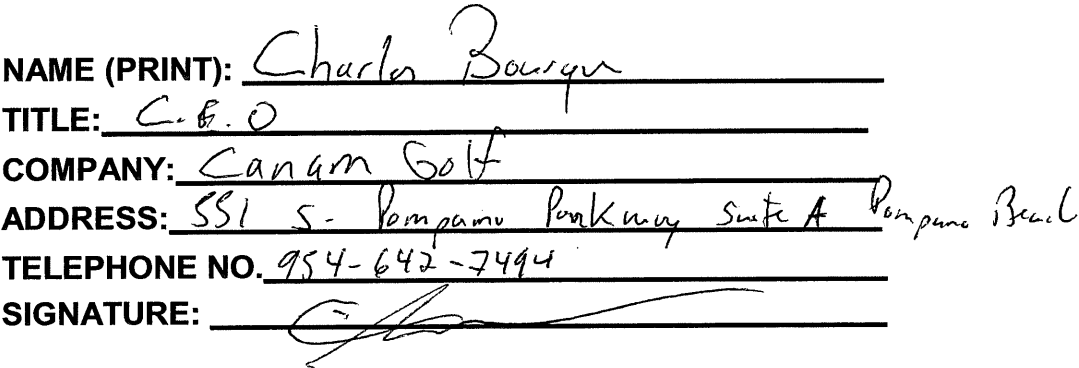 NAME (PRINT): Charles Bourque
TITLE: C.E.O
COMPANY: Canam Golf
ADDRESS: 551 S. Pompano Parkway Suite A Pompano Beach
TELEPHONE NO. 954-642-7494
SIGNATURE: